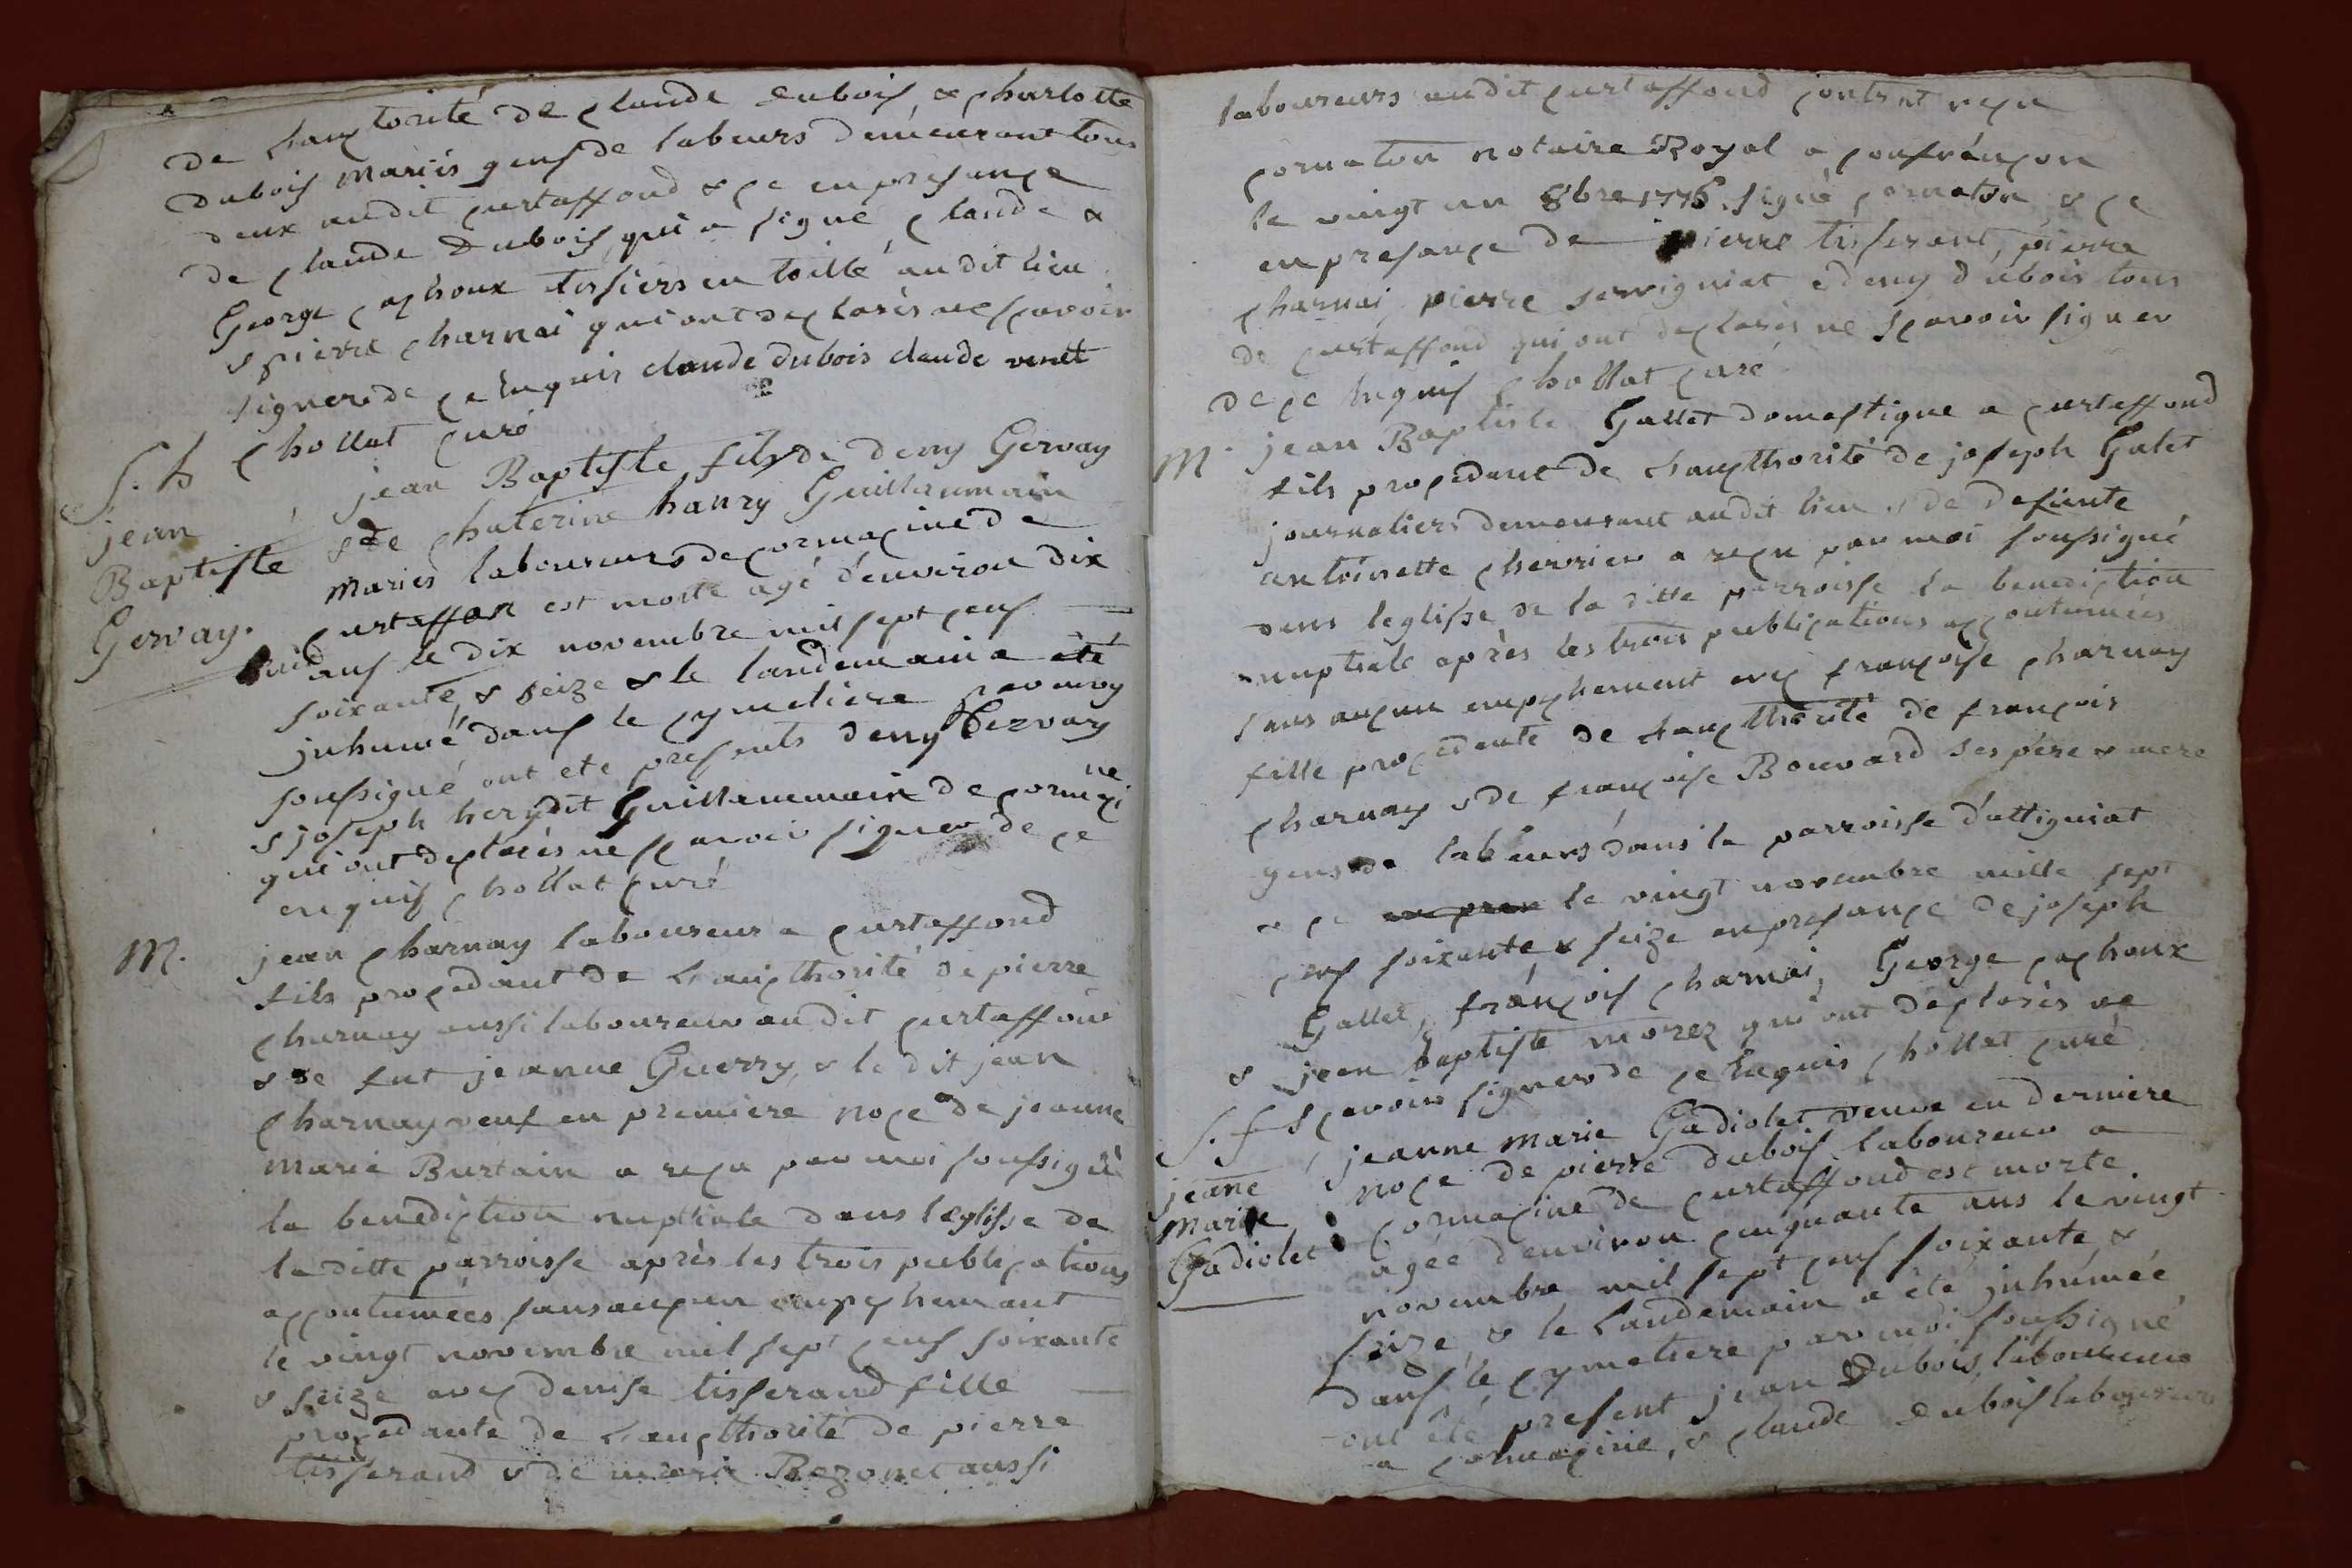 de L'auctorité de claude dubois & charlotte
dubois mariés gens de labeurs demeurant tous
deux audit curtaffond & ce en presance
de claude Dubois qui a signé, claude &
George cachoux tissiers en toille au dit lieu
& pierre charnai qui ont declarés ne scavoir
signer de ce enquis claude dubois claude
chollat curé
S. h
jean
Baptiste
Gervay.
jean Baptiste fils de deny Gervay
& de chaterine hanry Guillaumain
mariés laboureurs de cormacine de
curtaffon est morte agé d'environ dix
ans le dix novembre mil sept cens
soixante & seize & le landemain a été
jnhumé dans le cymetiere par moy
soussigné ont eté presents deny Gervay
& joseph hery dit Guillaumain de cormacine
qui ont declarés ne scavoir signer de ce
enquis chollat curé
M.
jean charnay laboureur a curtaffond
fils procedant de L'aucthorité de pierre
charnay aussi laboureur audit curtaffond
& de fut jeanne Guerry, & le dit jean
charnay veuf en premiere noce de jeanne
marie Burtain a reçu par moi soussigné
la benediction nuptiale dans leglisse de
la ditte parroisse après les trois publications
accoutumées sans aucun empechemant
le vingt novembre mil sept cens soixante
& seize avec denise tisserand fille
procedante de L'aucthorité de pierre
tisserand & de marie Bezonet aussi
laboureurs audit curtaffond contrat reçu
cornaton notaire Royal a confrançon
le vingt un 8bre 1776 signé cornaton & ce
en presance de pierre tisserant, pierre
charnai, pierre servigniat & deny dubois tous
de curtaffond qui ont declarés ne scavoir signer
de ce enquis chollat curé
M.
jean Baptiste Gallet domestique a curtaffond
fils procedant de L'aucthorité de joseph Galet
journaliers demeurant audit lieu & de defunte
antoinette cherrier a reçu par moi soussigné
dans leglisse de la ditte parroisse la benediction
nuptiale après les trois publications accoutumées
sans aucun empechement avec françoise charnay
fille procedante de L'aucthorité de françois
charnay & de françoise Bouvard ses père & mere
gens de labeurs dans la parroisse d'attigniat
& ce le vingt novembre mille sept
cens soixante & seize en presance de joseph
Gallet, françois charnai, George cachoux
& jean baptiste morez qui ont declarés ne
scavoir signer de ce enquis chollat curé
S. f
jeane
marie
Gadiolet
jeanne marie Gadiolet veuve en derniere
noce de pierre dubois laboureur a
cormacine de curtaffond est morte
agée d'environ cinquante ans le vingt
novembre mil sept cens soixante &
seize, & le landemain a été jnhumée
dans le cymetiere par moi soussigné
ont été present jean Dubois laboureur
a cormacine, & claude dubois laboureur